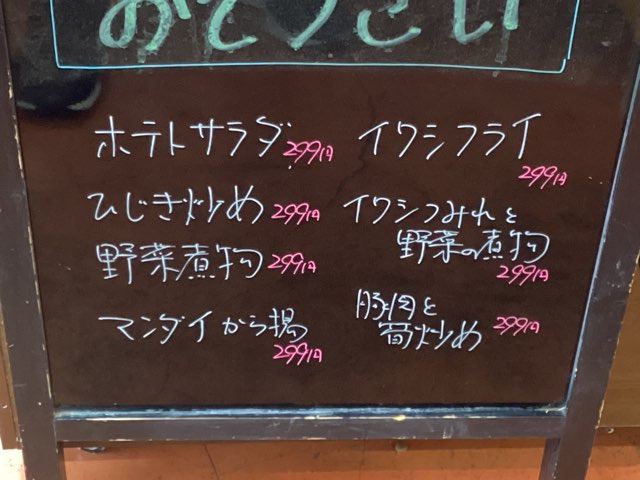 おそうざい
ポテトサラダ 299円
ひじき炒め 299円
野菜煮物 299円
マンダイから揚 299円
イワシフライ 299円
イワシつみれと
野菜の煮物 299円
豚肉と
筍炒め 299円